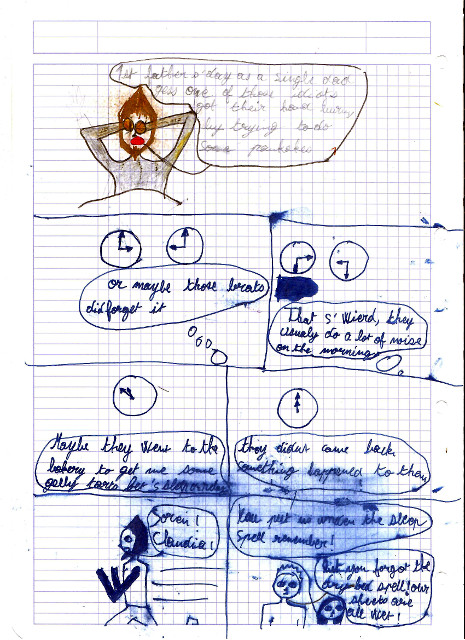 1st father s day as a single dad
one of those
got their hand burn
by trying to do
some pancakes
or maybe those brats
did forget it
That s' Wierd, they
usualy do a lot of noise
on the mornings
Maybe they Went to the
bakery to get me some
tarts let's sleep
they didnt came back
something happened to them
Soren!
Claudia!
You put us under the sleep
Spell remember!
But you forgot the
bed spell! our
sheets are
all Wet!